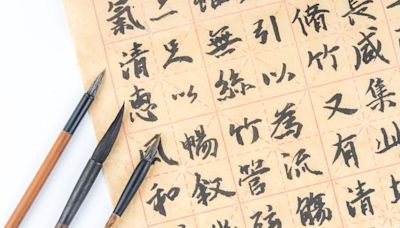 長咸集此
脩竹又有清
引以為流觴
無絲竹管
足以暢敘
氣清惠風和